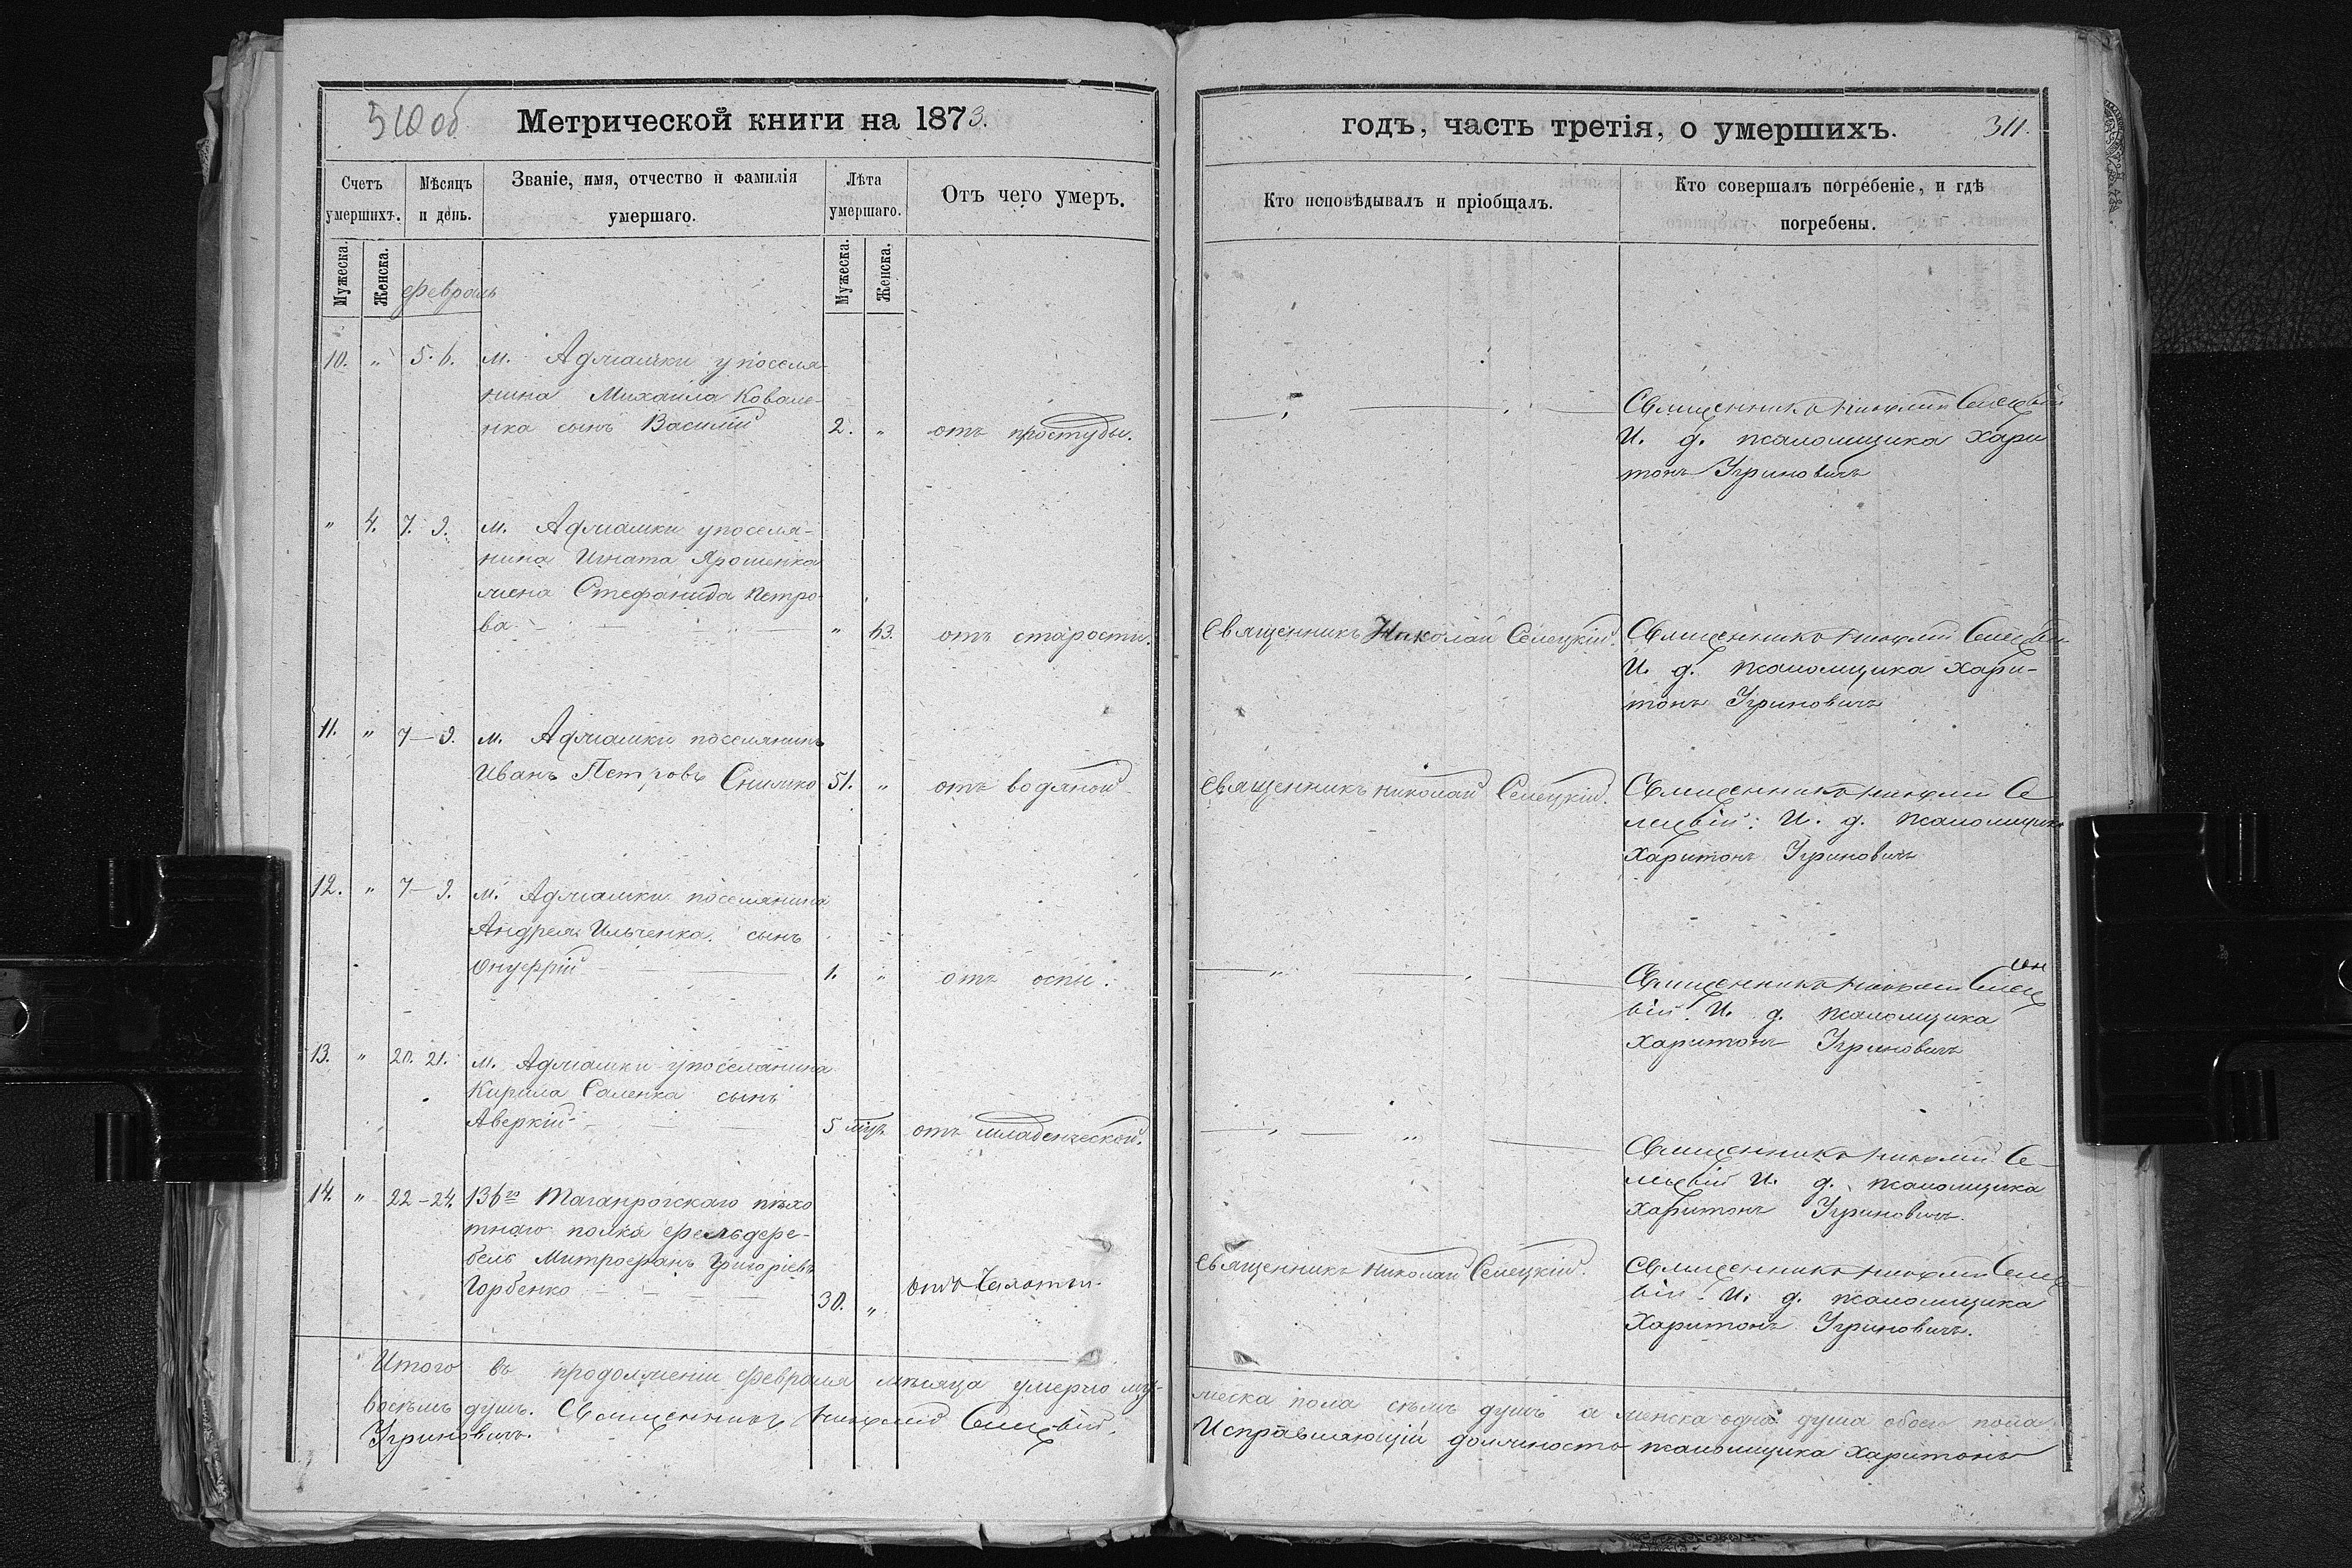 510об
Метрической книги на 1873.
Счетъ умершихъ.
Мѣсяцъ и день.
Званіе, имя, отчество и фамилія умершаго.
Лѣта умершаго.
Отъ чего умеръ.
Мужеска.
Женска.
февраль
Мужеска.
Женска.
10. " 5. 6. м. Аджамки упоселя-
нина Михаила Ковале-
нка сынъ Василій 2. " отъ простуды.
" 4. 7. 9. м. Аджамки упоселя-
нина Игната Ярошенка
жена Стефанида Петро-
ва " 63. отъ старости.
11. " 7–9. м. Аджамки поселянинъ
Иванъ Петровъ 51. " отъ водяной
12. " 7–9. м. Аджамки поселянина
Андрея Ильченка сынъ
Онуфрій 1. " отъ оспы.
13. " 20. 21. м. Аджамки упоселянина
Кирила Саленка сынъ
Аверкій 5 мц. отъ младенческой.
14. " 22–24. 136го Таганрогскаго пѣхо
тнаго полка фельдфе-
бель Митрофанъ Григоріевъ
Горбенко 30. " отъ Чахотки
Итого въ продолженіи февраля мѣсяца умерло му-
восемь душъ. Священникъ Николай Селецкій.
Угриновичъ.
годъ, часть третія, о умершихъ.
311.
Кто исповѣдывалъ и пріобщалъ.
Кто совершалъ погребеніе, и гдѣ погребены.
Священникъ Николай Селецкій
И. д. псаломщика Хари
тонъ Угриновичъ
Священникъ Николай Селецкій.
Священникъ Николай Селецкій
И. д. псаломщика Хари-
тонъ Угриновичъ
Священникъ Николай Селецкій.
Священникъ Николай Се
лецкій: И. д. псаломщика
Харитонъ Угриновичъ
Священникъ Николай Селец
кій. И. д. псаломщика
Харитонъ Угриновичъ
Священникъ Николай Се-
лецкій И. д. псаломщика
Харитонъ Угриновичъ.
Священникъ Николай Селецкій.
Священникъ Николай Селец
кій. И. д. псаломщика
Харитонъ Угриновичъ.
жеска пола семь душъ а женска одна душа обоего пола
Исправляющій должность псаломщика Харитонъ